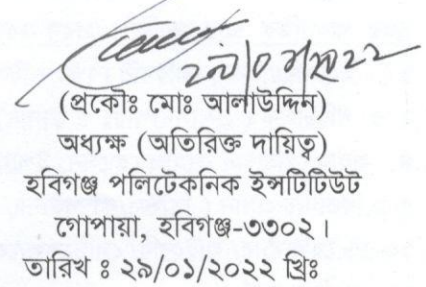 ২৯/০১/২০২২
(প্রকৌঃ মোঃ আলাউদ্দিন)
অধ্যক্ষ (অতিরিক্ত দায়িত্ব)
হবিগঞ্জ পলিটেকনিক ইন্সটিটিউট
গোপায়া, হবিগঞ্জ-৩৩০২।
তারিখ ঃ ২৯/০১/২০২২ খ্রিঃ